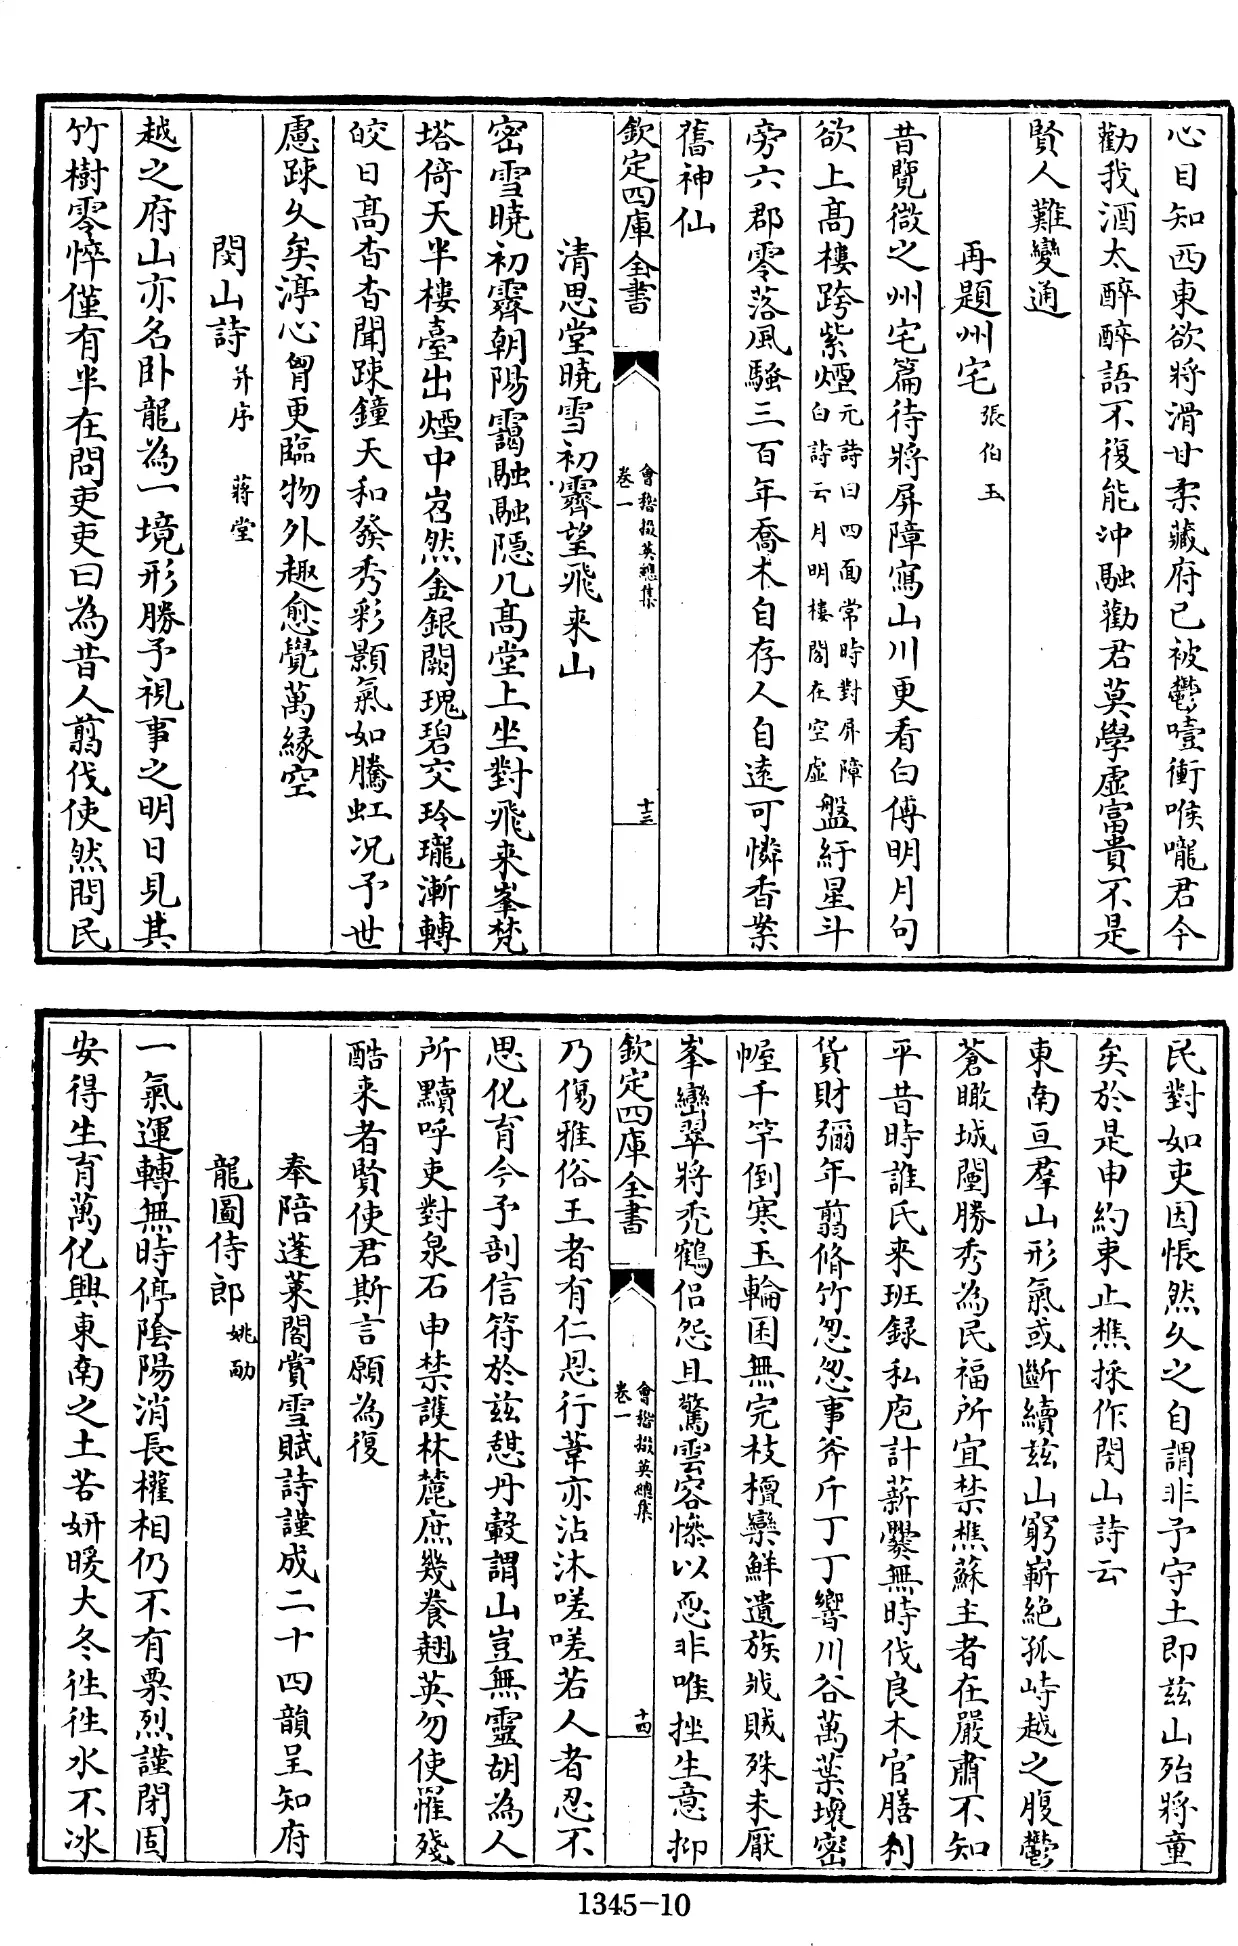 心目知西東欲將滑甘柔藏府已被鬱噎衝喉嚨君今
勸我酒太醉醉語不復能沖融勸君莫學虛富貴不是
賢人難變通
再題州宅 張伯玉
昔覽微之州宅篇待將屏障寫山川更看白傅明月句
欲上髙樓跨紫煙元詩曰四面常時對屏障白詩云月明樓閣在空虛盤紆星斗
旁六郡零落風騷三百年喬木自存人自遠可憐香案
舊神仙
欽定四庫全書
會稽掇英總集
卷一
十三
清思堂曉雪初霽望飛来山
密雪曉初霽朝陽靄融融隠几髙堂上坐對飛来峯梵
塔倚天半樓臺出煙中岧然金銀闕瑰碧交玲瓏漸轉
皎日髙杳杳聞踈鐘天和發秀彩顥氣如騰虹况予世
慮踈久矣渟心胷更臨物外趣愈覺萬縁空
閔山詩 并序 蔣堂
越之府山亦名卧龍為一境形勝予視事之明日見其
竹樹零悴僅有半在問吏吏曰為昔人翦伐使然問民
民對如吏因悵然久之自謂非予守土即兹山殆將童
矣於是申約束止樵採作閔山詩云
東南亘羣山形氣或斷續兹山窮嶄絶孤峙越之腹鬱
蒼瞰城闉勝秀為民福所宜禁樵蘇主者在嚴肅不知
平昔時誰氏来班録私庖計薪爨無時伐良木官膳利
貨財彌年翦脩竹忽忽事斧斤丁丁響川谷萬葉壞密
幄千竿倒寒玉輪囷無完枝檀欒鮮遺族戕賊殊未厭
峯巒翠將秃鶴侣怨且驚雲容慘以恧非唯挫生意抑
欽定四庫全書
會稽掇英總集
卷一
十四
乃傷雅俗王者有仁恩行葦亦沾沐嗟嗟若人者忍不
思化育今予剖信符於兹憇丹轂謂山豈無靈胡為人
所黷呼吏對泉石申禁護林麓庶幾養翹英勿使罹殘
酷来者賢使君斯言願為復
奉陪蓬莱閣賞雪賦詩謹成二十四韻呈知府
龍圖侍郎 姚勔
一氣運轉無時停陰陽消長權相仍不有栗烈謹閉固
安得生育萬化興東南之土苦妍暖大冬徃徃水不冰
1345-10